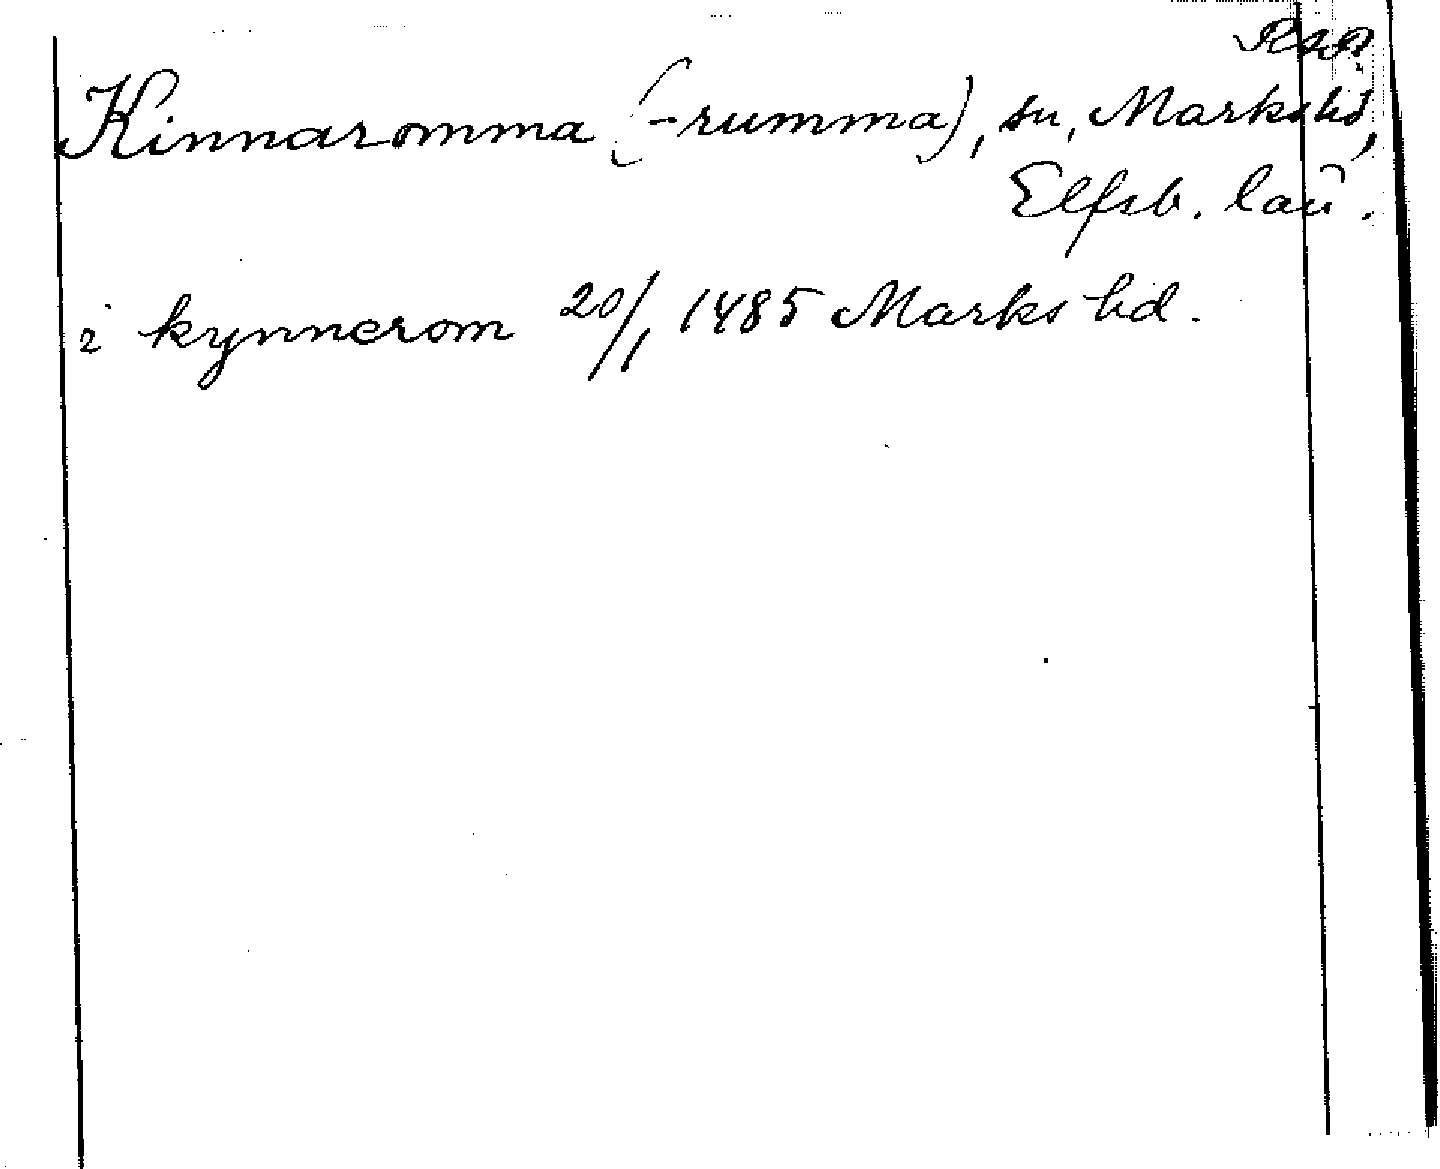 RAP.
Kinnaromma (-rumma), sn, Marks hd,
Elfsb. län.
i kynnerom 20/1 1485 Marks hd.